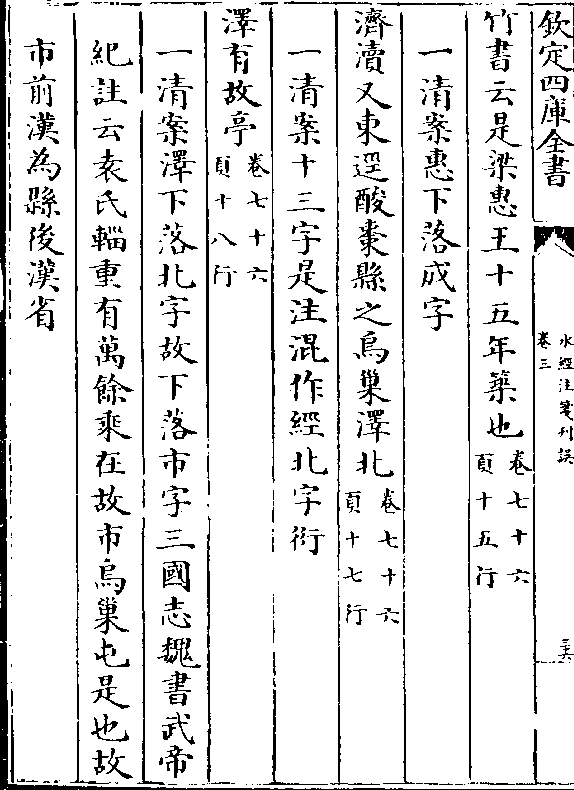 欽定四庫全書
水經注箋刊誤
卷三
三六
竹書云是梁惠王十五年築也卷七十六頁十五行
一清案惠下落成字
濟瀆又東逕酸棗縣之烏巢澤北卷七十六頁十七行
一清案十三字是注混作經北字衍
澤有故亭卷七十六頁十八行
一清案澤下落北字故下落市字三國志魏書武帝
紀註云袁氏輜重有萬餘乘在故市烏巢屯是也故
市前漢為縣後漢省